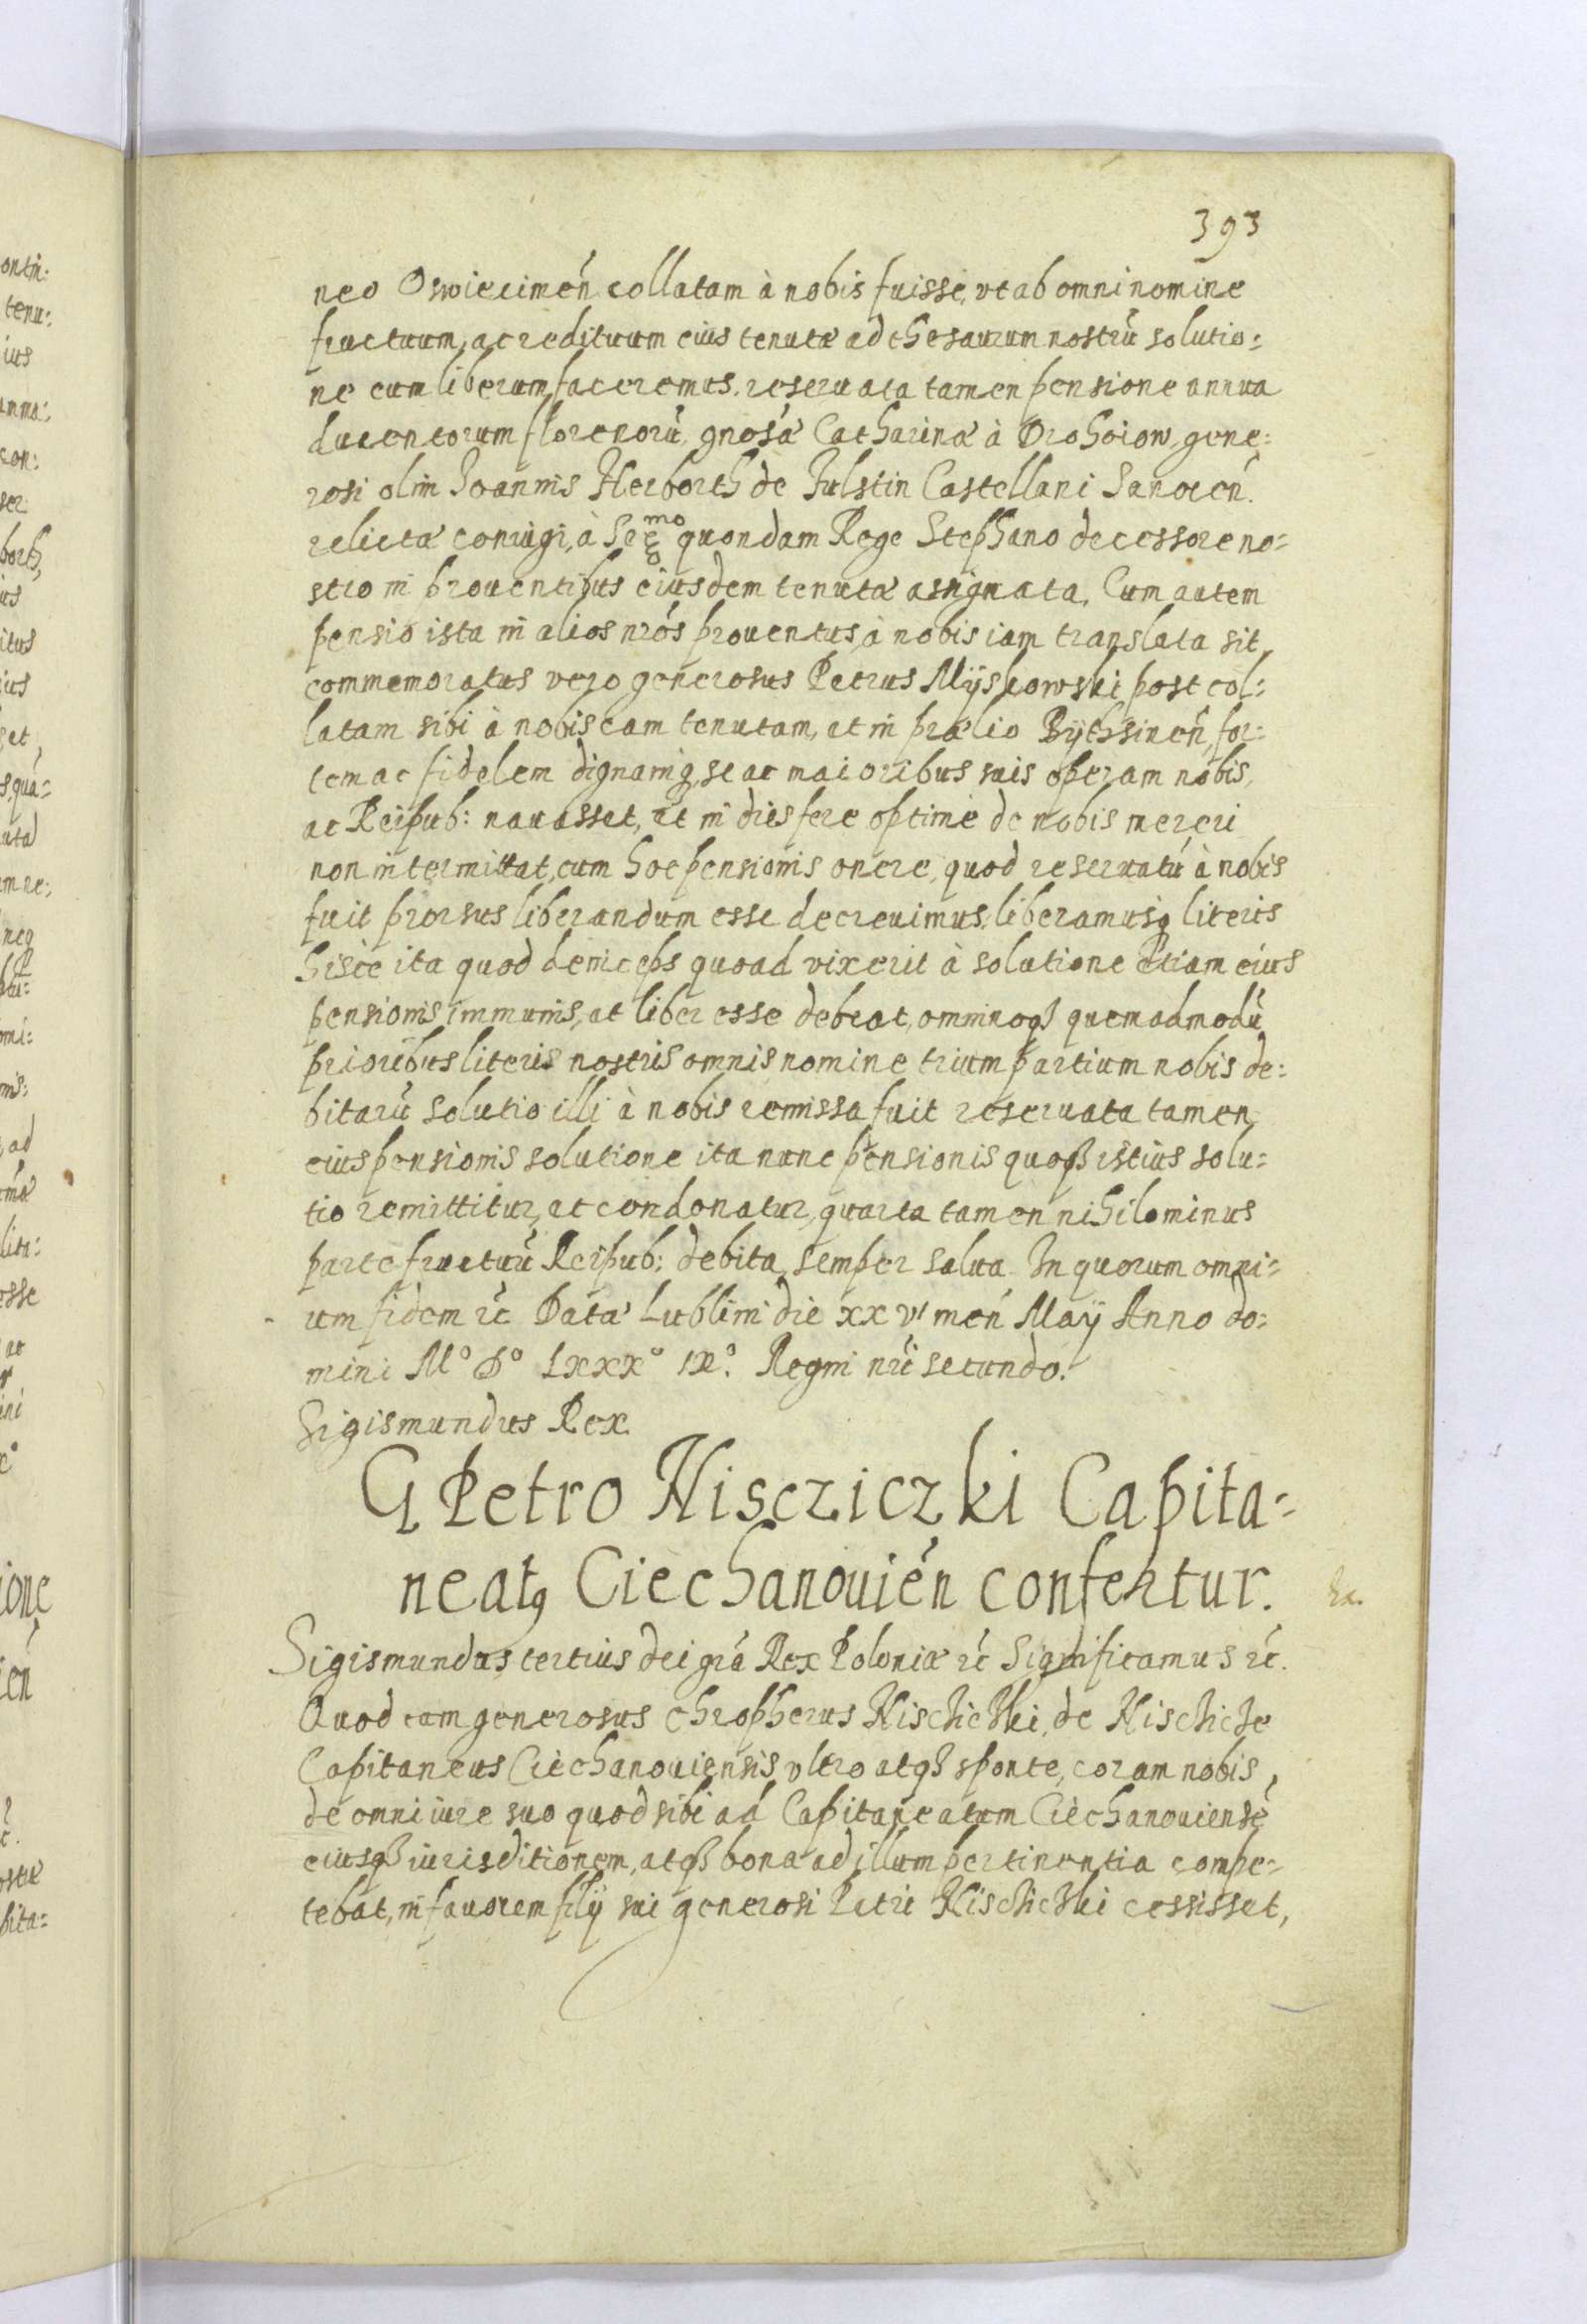 393
neo Oswiecimeń collatam à nobis fuisse, vt ab omni nomine
fructuum, ac redituum eius tenutæ ad thesaurum nostrū solutio:
ne eum liberum faceremus, reseruata tamen pensione annua
ducentorum florenorū, gnosæ Catharinæ à Drohoiow, gene:
rosi olim Joannis Herborth de Fulstin Castellani Sanoceń
relictæ coniugi, à Sereᵐᵒ quondam Rege Stephano decessore no:
stro in prouentibus eiusdem tenutæ assignata. Cum autem
pensio ista in alios nrós prouentus, à nobis iam translata sit,
commemoratus vero generosus Petrus Mÿszkowski post col:
latam sibi à nobis eam tenutam, et in prælio Bÿthsineń, for:
tem ac fidelem dignamq, se ac maioribus suis operam nobis,
ac Reipub: nauasset, et in dies fere optimè de nobis mereri
non intermittat, eum hoc pensionis onere, quod reseruatū à nobis
fuit prorsus liberandum esse decreuimus, liberamusq literis
hisce ita quod deinceps quoad vixerit à solutione etiam eius
pensionis immunis, ac liber esse debeat, omninoqȝ quemadmodū
prioribus literis nostris omnis nomine trium partium nobis de:
bitarū solutio illi à nobis remissa fuit reseruata tamen
eius pensionis solutione ita nunc pensionis quoqȝ istius solu:
tio remittitur, ac condonatur, quarta tamen nihilominus
parte fructuū Reipub: debita, semper salua. In quorum omni:
um fidem ꝛć Datæ Lublini die xx vˡ meń Maÿ Anno do:
mini Mº Dº Lxxxº ixº. Regni nri secundo.
Sigismundus Rex
G Petro Niscziczki Capita:
neatꝰ Ciechanouień confertur.
Sigismundus tertius dei grá Rex Poloniæ ꝛć Significamus ꝛć.
Quod cum generosus Chropherus Nischichki, de Nischicze
Capitaneus Ciechanouiensis vltro atqȝ sponte, coram nobis,
de omni iure suo quod sibi ad Capitaneatum Ciechanouiensē
eiusqȝ iurisditionem, atqȝ bona ad illum pertinentia compe:
tebat, in fauorem filÿ sui generosi Petri Nischichki cessisset,